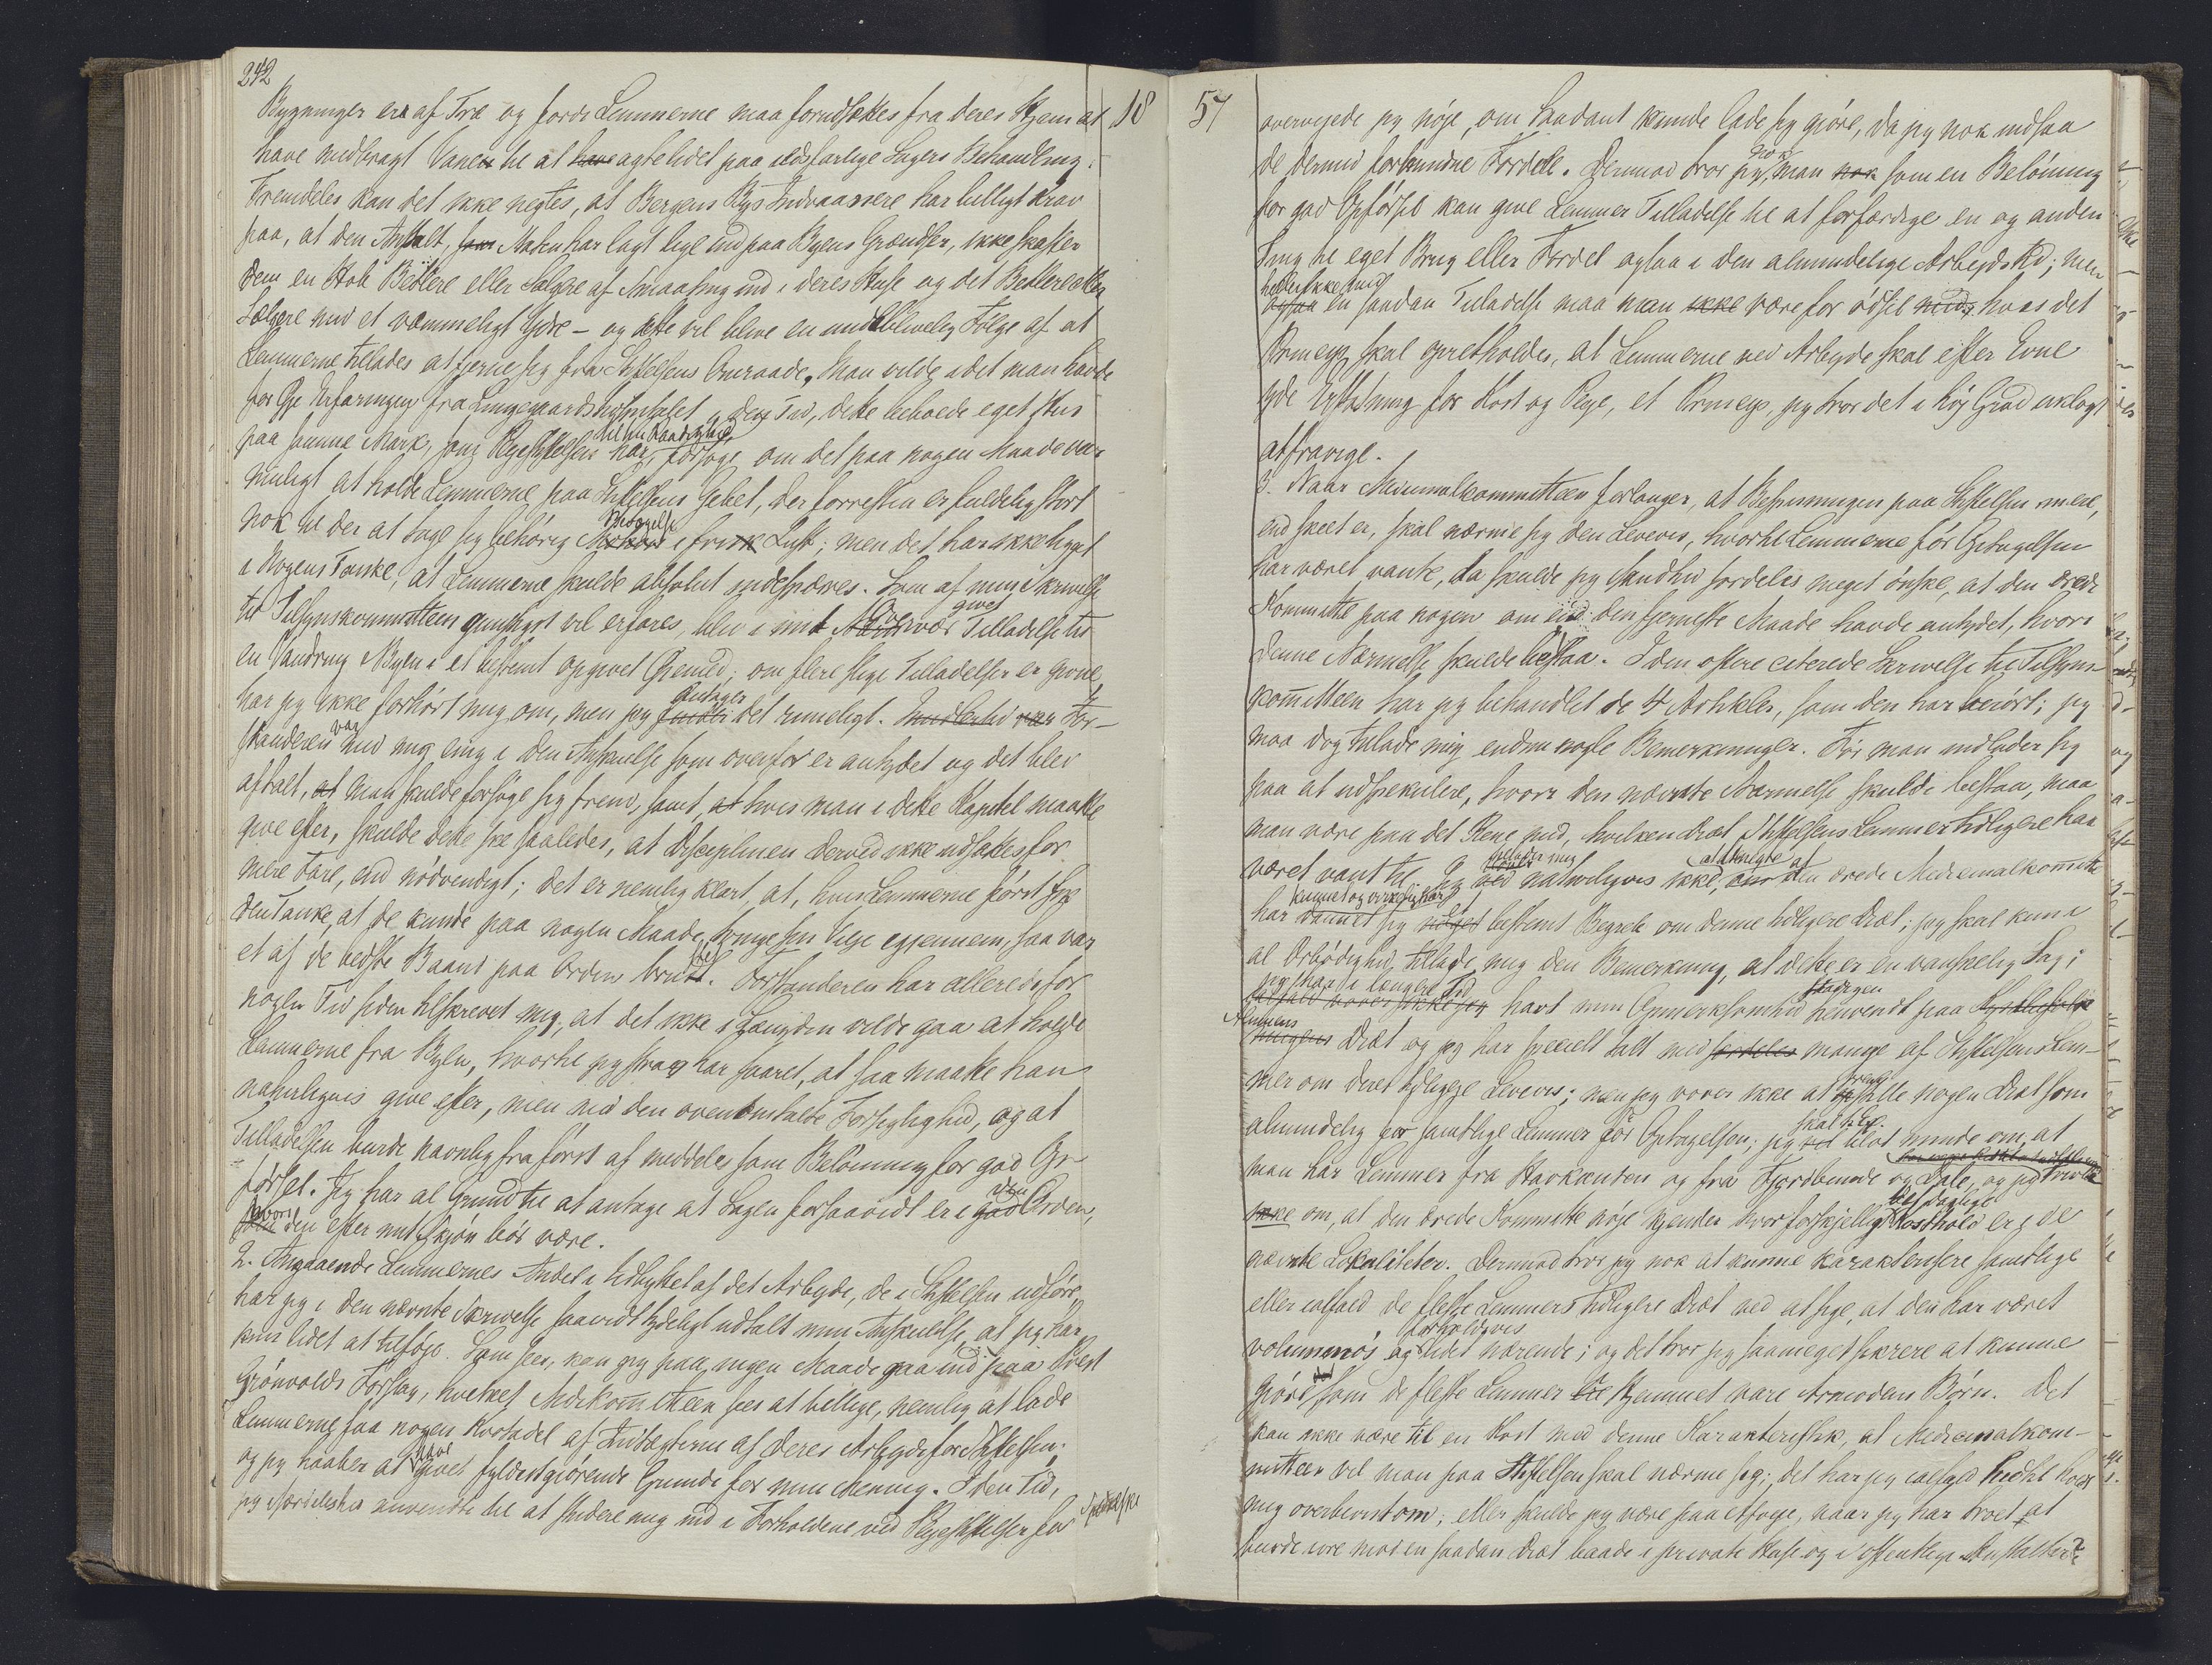 242
Bygninger ere af Træ og fordi Lemmerne maa forudsættes fra deres Hjem at
have medbragt Vanen til at agte lidet paa ildsfarlige Sagers Behandling.
Fremdeles kan det ikke negtes, at Bergens Bys Indvaanere har billigt Krav
paa, at den Anstalt, Staten har lagt lige ind paa Byens Grændser, ikke skaffer
dem en Hob Betlere eller Sælgere af Smaating ind i deres Huse og det Betlere eller
Sælgere med et væmmeligt Ydre – og dette vil blive en uudeblivelig Følge af at
Lemmerne tillades at fjerne sig fra Stiftelsens Omraade. Man vilde, idet man havde
for Øje Erfaringen fra Lungegaardshospitalet i den Tid, dette beboede eget Hus
paa samme Mark, som Plejestiftelsen har til sin Raadighed, forsøge, om det paa nogen Maade var
muligt at holde Lemmerne paa Stiftelsens Gebet, der forresten er fuldelig stort
nok til der at tage sig behørig Bevægelse i frisk Luft; men det har ikke ligget
i Nogens Tanke, at Lemmerne skulde absolut indespærres. Som af min Skrivelse
til Tilsynskommitteen gunstigst vil erfares, blev i mit Nærvær givet Tilladelse til
en Vandring i Byen i et bestemt opgivet Øiemed; om flere slige Tilladelser er givne
har jeg ikke forhørt mig om, men jeg antager det rimeligt. For-
standeren var med mig enig i den Anskuelse som ovenfor er antydet og det blev
aftalt, at man skulde forsøge sig frem, samt, at hvis man i dette Kapitel maatte
give efter, skulde dette ske saaledes, at Disciplinen derved ikke udsattes for
mere Fare, end nødvendigt; det er nemlig klart, at, hvis Lemmerne først fik
den Tanke, at de kunde paa nogen Maade tvinge sin Vilje igjennem, saa var
et af de bedste Baand paa Orden brudt. Forstanderen har allerede for
nogen Tid siden tilskrevet mig, at det ikke i Længden vilde gaa at holde
Lemmerne fra Byen, hvortil jeg strax har svaret, at saa maatte han
naturligvis give efter, men med den ovenomtalte Forsigtighed, og at
Tilladelsen burde navnlig fra først af meddeles som Belønning for god Op-
førsel. Jeg har al Grund til at antage at Sagen forsaavidt er i den Orden,
hvori den efter mit Skjøn bør være.
2. Angaaende Lemmernes Andel i Udbyttet af det Arbejde, de i Stiftelsen udføre,
har jeg i den nævnte Skrivelse saavidt tydeligt udtalt min Anskuelse, at jeg har
kun lidet at tilføje. Som sees, kan jeg paa ingen Maade gaa ind paa Præst
Grønvolds Forslag, hvilket Medkomitteen sees at bellige, nemlig at lade
Lemmerne faa nogen Kvotadel af Indtægterne af deres Arbejde for Stiftelsen;
og jeg haaber at have givet fyldestgjørende Grunde for min Mening. I den Tid,
jeg særdeleshed anvendte til at studere mig ind i Forholdene ved Plejestiftelsen for Spedalske
18
57
overvejede jeg nøje, om Saadant kunde lade sig gjøre, da jeg nok indsaa
de dermed forbundne Fordele. Derimod tror jeg nok, man som en Belønning
for god Opførsel kan give Lemmer Tilladelse til at forfærdige en og anden
Ting til eget Brug eller Fordel ogsaa i den almindelige Arbejdstid; men
heller ikke med en saadan Tilladelse maa man være for ødsel hvis det
Princip skal opretholdes, at Lemmerne ved Arbejde skal efter Evne
yde Erstatning for Kost og Pleje, et Princip, jeg tror det i høj Grad uklogt
at fravige.
3. Naar Medicinalkommitteen forlanger, at Bespisningen paa Stiftelsen mere,
end skeet er, skal nærme sig den Levevis, hvortil Lemmerne før Optagelsen
har været vante, da skulde jeg i Sandhed fordeles meget ønske, at den ærede
Kommitte paa nogen om end den fjerneste Maade havde antydet, hvori
denne Nærmelse skulde bestaa. I den oftere citerede Skrivelse til Tilsyns-
komitteen har jeg behandlet de 4 Artikler, som den har berørt; jeg
maa dog tillade mig endnu nogle Bemerkninger. Før man indlader sig
paa at udspekulere, hvori den nævnte Nærmelse skulde bestaa, maa
man være paa det Rene med, hvilken Diæt Stiftelsens Lemmer tidligere har
været vant til. Jeg tillader mig naturligvis ikke at benegte, at den ærede Medicinalkomitte
har kunnet og virkelig har dannet sig bestemt Begreb om denne tidligere Diæt; jeg skal kun i
al Ærbødighed tillade mig den Bemerkning, at dette er en vanskelig Sag;
jeg har i længere Tid havt min Opmerksomhed stadigen henvendt paa
Almuens Diæt og jeg har specielt talt med mange af Stiftelsens Lem-
mer om deres tidligere Levevis; men jeg vover ikke at fremstille nogen Diæt som
almindelig for samtlige Lemmer før Optagelsen; jeg skal blot minde om, at
man har Lemmer fra Havkanten og fra Fjordbunde og Dale, og jeg tvivler
ikke om, at den ærede Kommitte nøje kjender hvor forskjelligt det daglige Kosthold er i de
nævnte Lokaliteter. Derimod tror jeg nok at kunne karakterisere samtlige
eller ialfald de fleste Lemmers tidligere Diæt ved at sige, at den har været
voluminøs og forholdsvis lidet nærende; og det tror jeg saameget sikrere at kunne
gjøre, som de fleste Lemmer i Hjemmet vare Armodens Børn. Det
kan ikke være til en Kost med denne Karakteristik, at Medicinalkom-
mitteen vil man paa Stiftelsen skal nærme sig; det har jeg ialfald hidtil holdt
mig overbevist om; eller skulde jeg være paa Afveje, naar jeg har troet at
burde ivre mod en saadan Diæt baade i private Huse og i offentlige Anstalter?